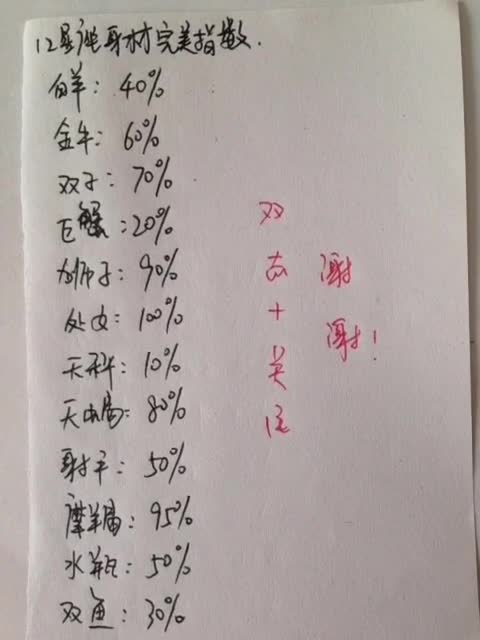 12星座身材完美指数.
白羊: 40%
金牛: 60%
双子: 70%
巨蟹: 20%
狮子: 90%
处女: 100%
天秤: 10%
天蝎: 80%
射手: 50%
摩羯: 95%
水瓶: 50%
双鱼: 30%
双
击
+
关
注
谢
谢!